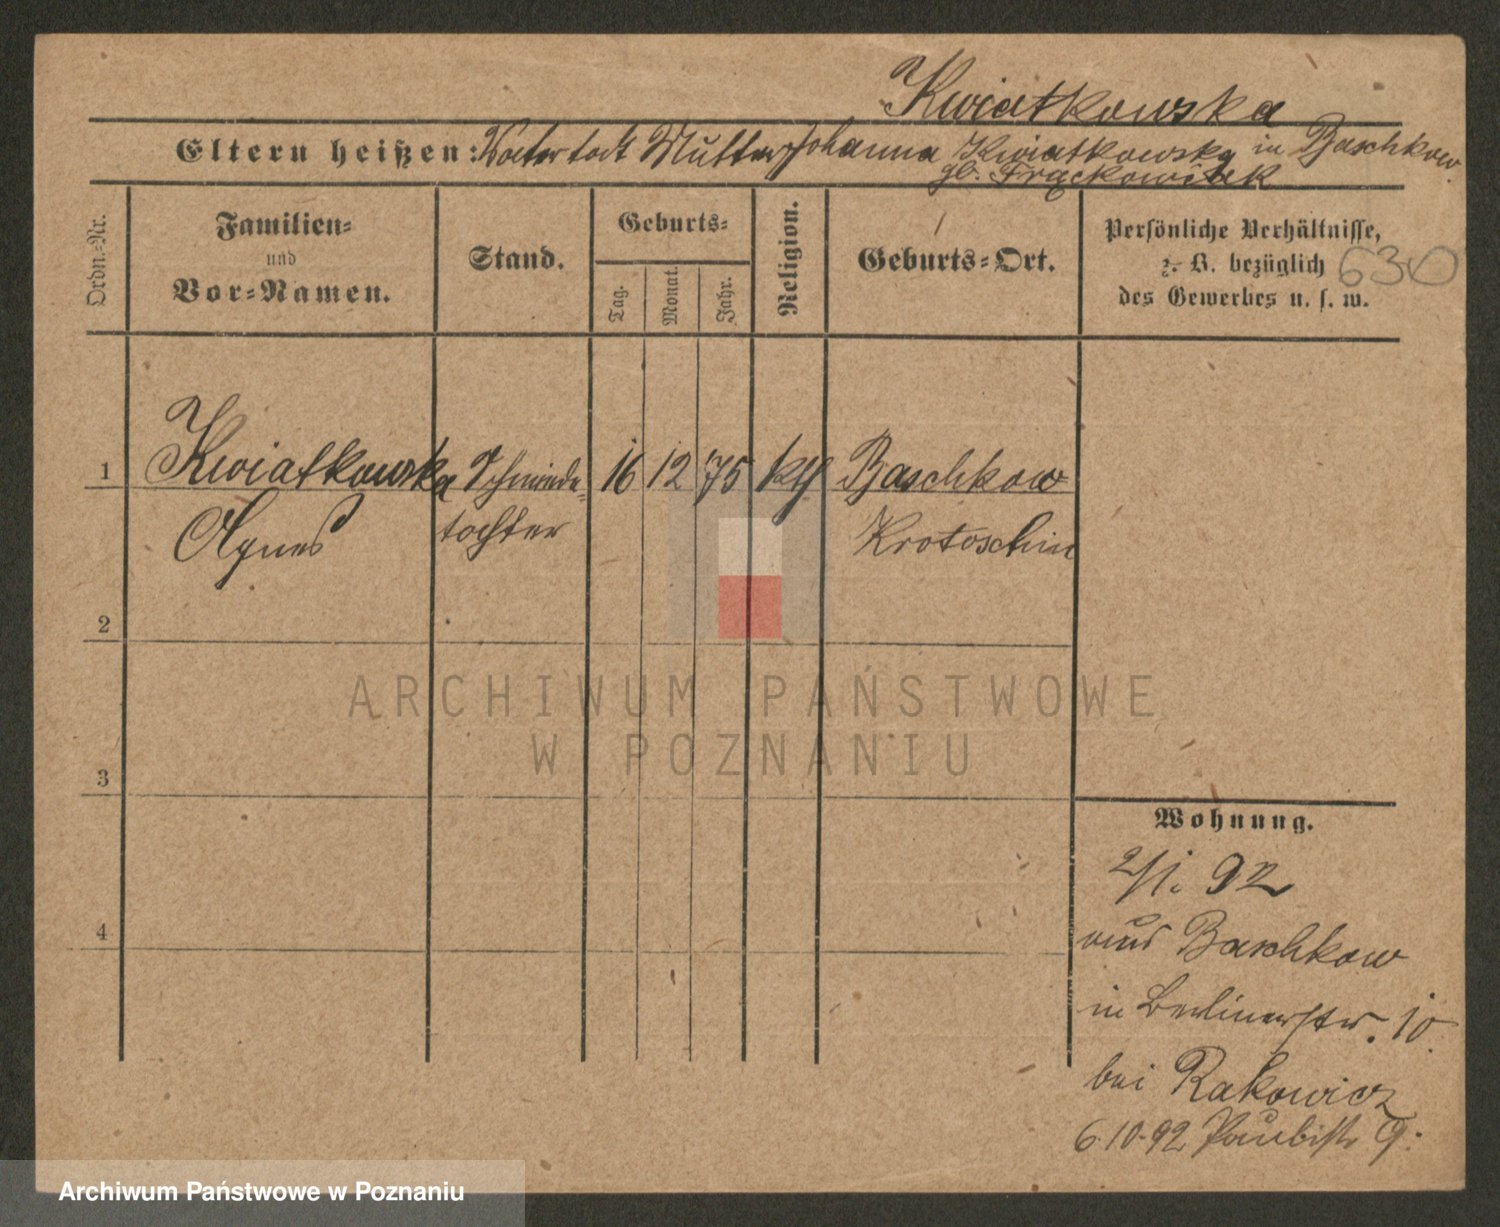 Kwiatkowska
Eltern heißen: Vater todt Mutter Johanna Kwiatkowska in Baschkow
gb. Frąckowiak
Ordn.-Nr.
Familien-
und
Vor-Namen.
Stand.
Geburts-
Tag.
Monat.
Jahr.
Religion.
Geburts-Ort.
Persönliche Verhältnisse,
z. B. bezüglich
des Gewerbes u. s. w.
630
1 Kwiatkowska Schmiede- 16 12 75 kth Baschkow
Agnes tochter Krotoschin
2
3
4
Wohnung.
2/1. 92
aus Baschkow
in Berlinerstr. 10.
bei Rakowicz
6.10.92 9.
ARCHIWUM PAŃSTWOWE
W POZNANIU
Archiwum Państwowe w Poznaniu